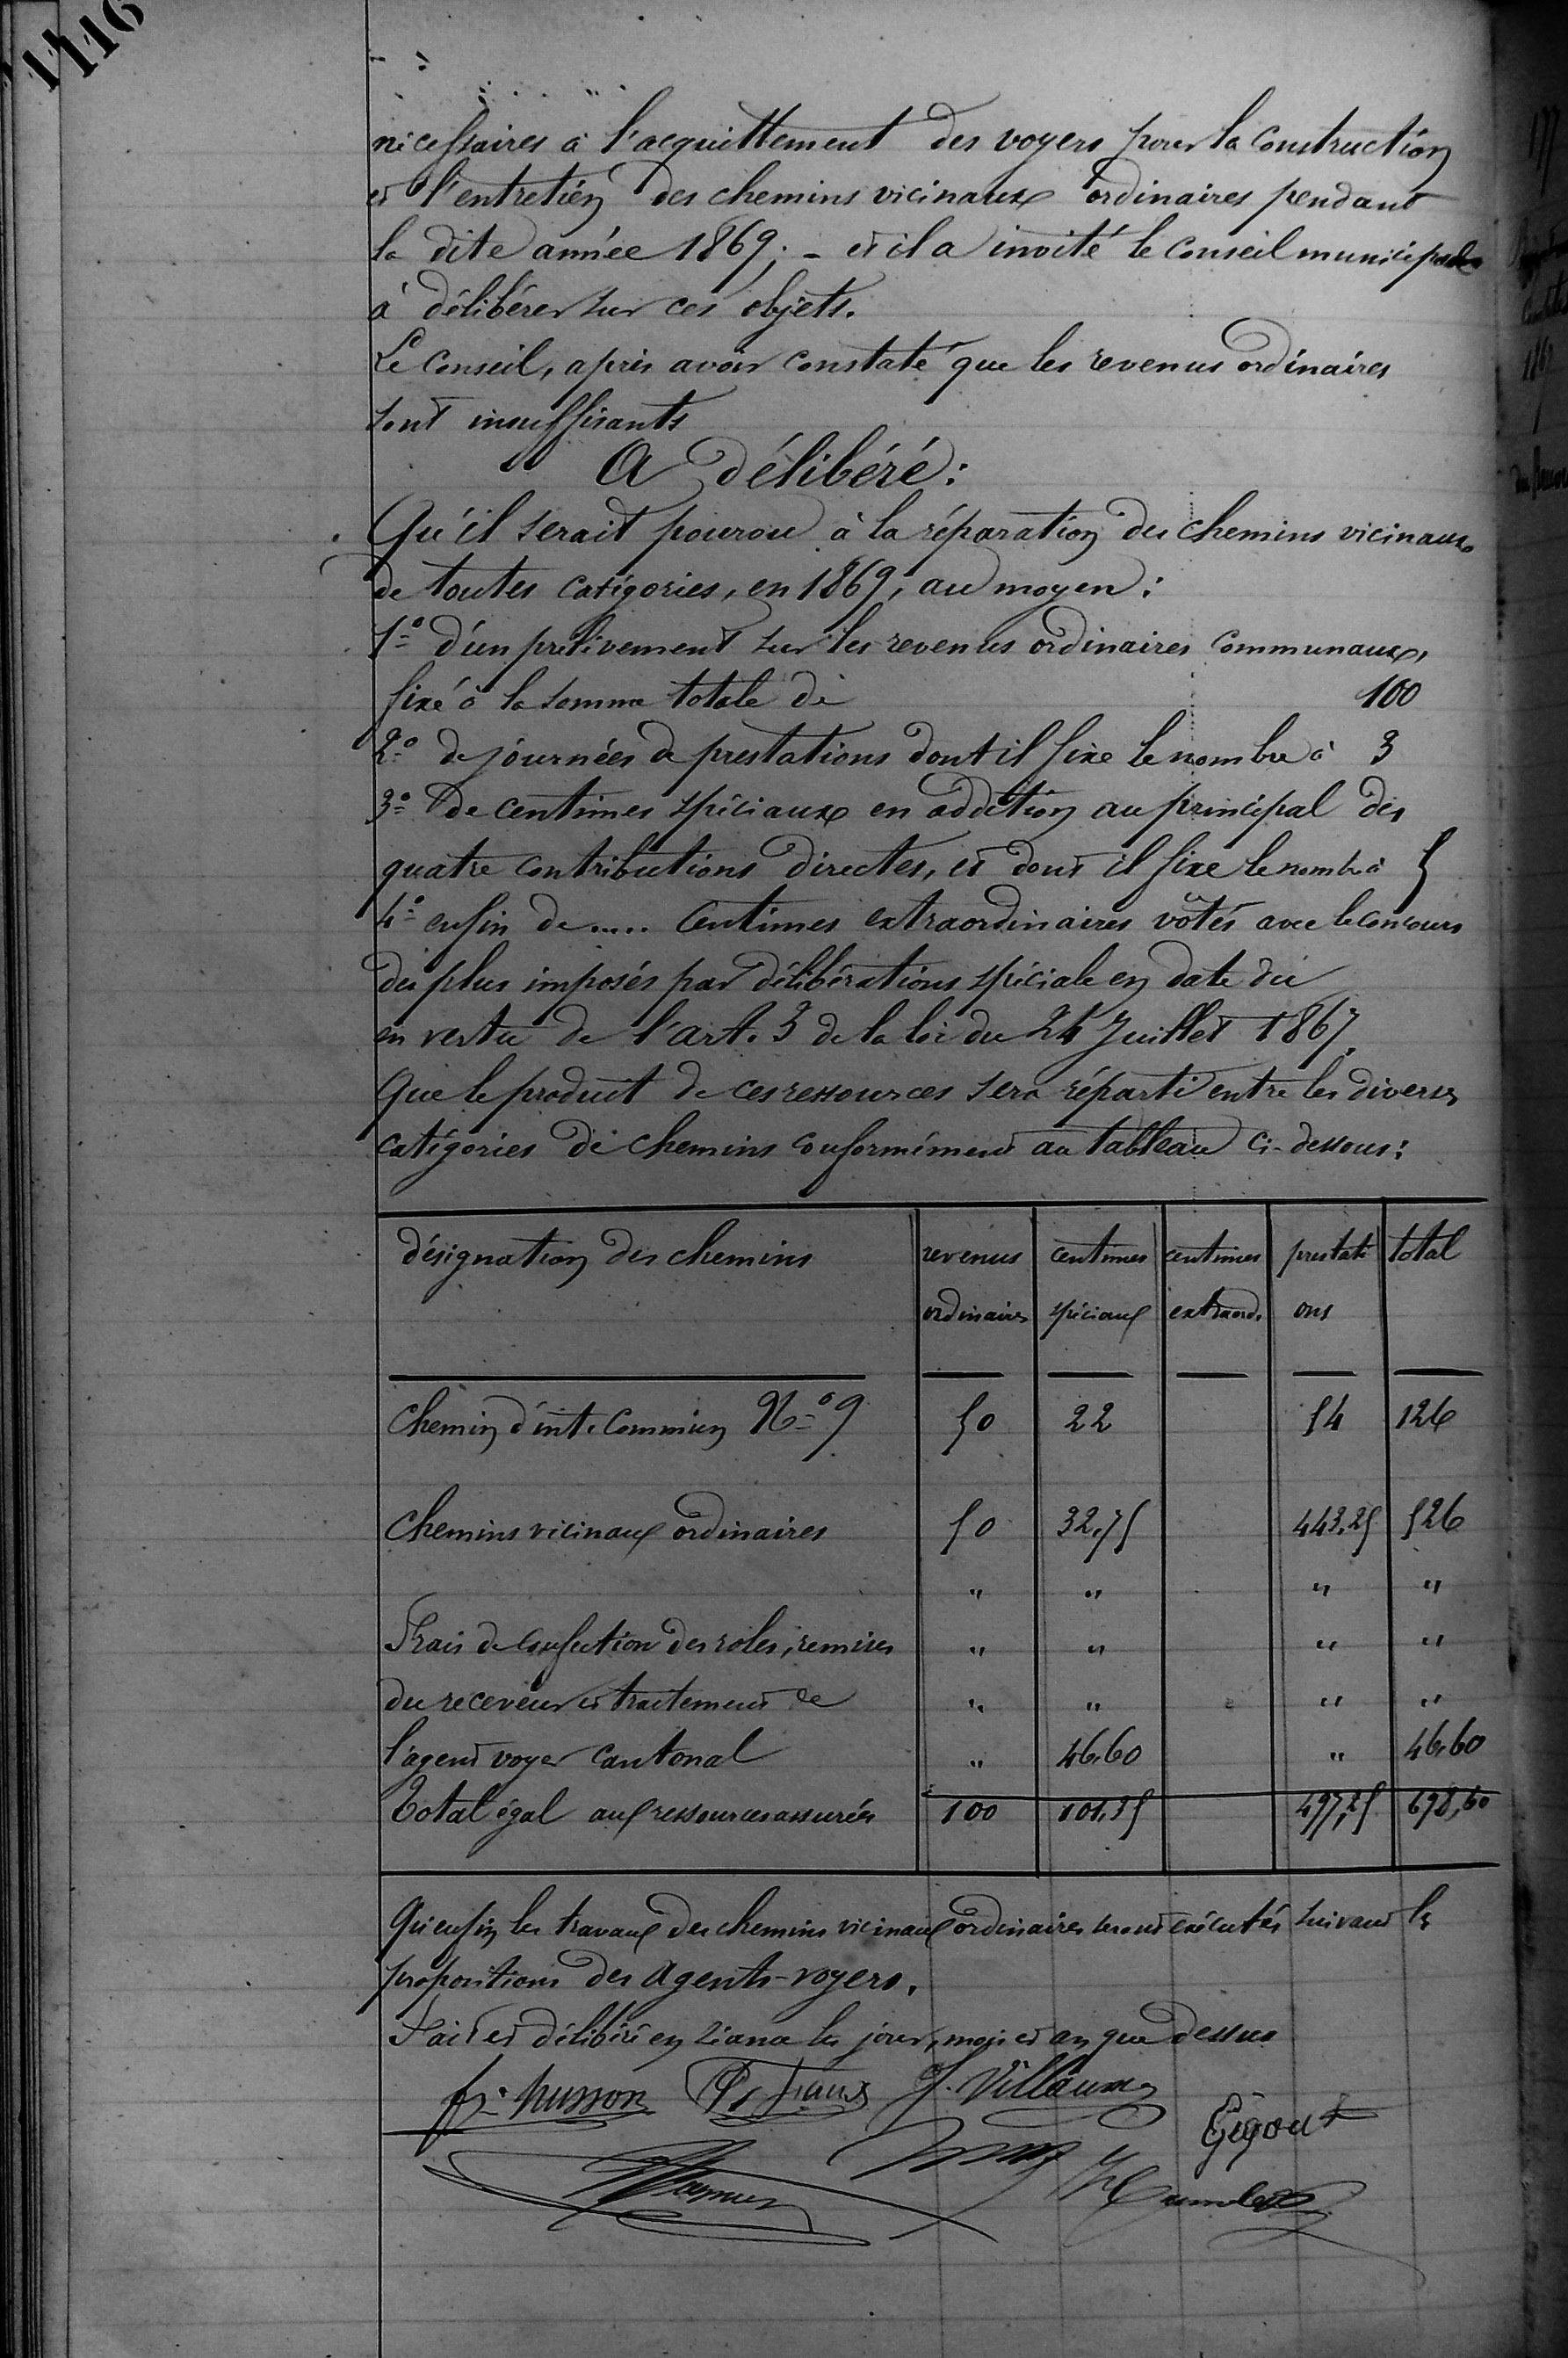 1116
nécessaires à l'acquittement des voyers pour la construction
et l'entretien des chemins vicinaux ordinaires pendant
la dite année 1869; - et il a invité le Conseil municipal
à délibérer sur ces objets.
Le Conseil, après avoir constaté que les revenus ordinaires
sont insuffisants
A délibéré:
Qu'il serait pourvu à la réparation des chemins vicinaux
de toutes catégories, en 1869, au moyen:
1º d'un prélèvement sur les revenus ordinaires communaux,
fixé à la somme totale de 100
2º de journées de prestations dont il fixe le nombre à 3
3º de centimes spéciaux en addition au principal des
quatre contributions directes, et dont il fixe le nombre à 5
4º enfin de ..... Centimes extraordinaires votés avec le concours
des plus imposés par délibérations spéciale en date du
en vertu de l'art. 3 de la loi du 24 Juillet 1867.
Que le produit de ces ressources sera réparti entre les diverses
catégories de chemins conformément au tableau ci-dessous:
désignation des chemins revenus centimes centimes prestati total
ordinaires spéciaux extraord. ons
Chemin d'int. Commun Nº 9 50 22 54 126
Chemins vicinaux ordinaires 50 32,75 443,25 526
" " " "
Frais de confection des roles, remises " " " "
du receveur et traitement de " " " "
l'agent voyer Cantonal " 46,60 " 46,60
Total égal aux ressources assurées 100 101,35 497,25 698,60
Qu'enfin les travaux des chemins vicinaux ordinaires seront exécutés suivant les
propositions des Agents-voyers.
Fait et délibéré en séance les jour, mois et an que dessus
husson J. Villaume
Gigout
Humbert